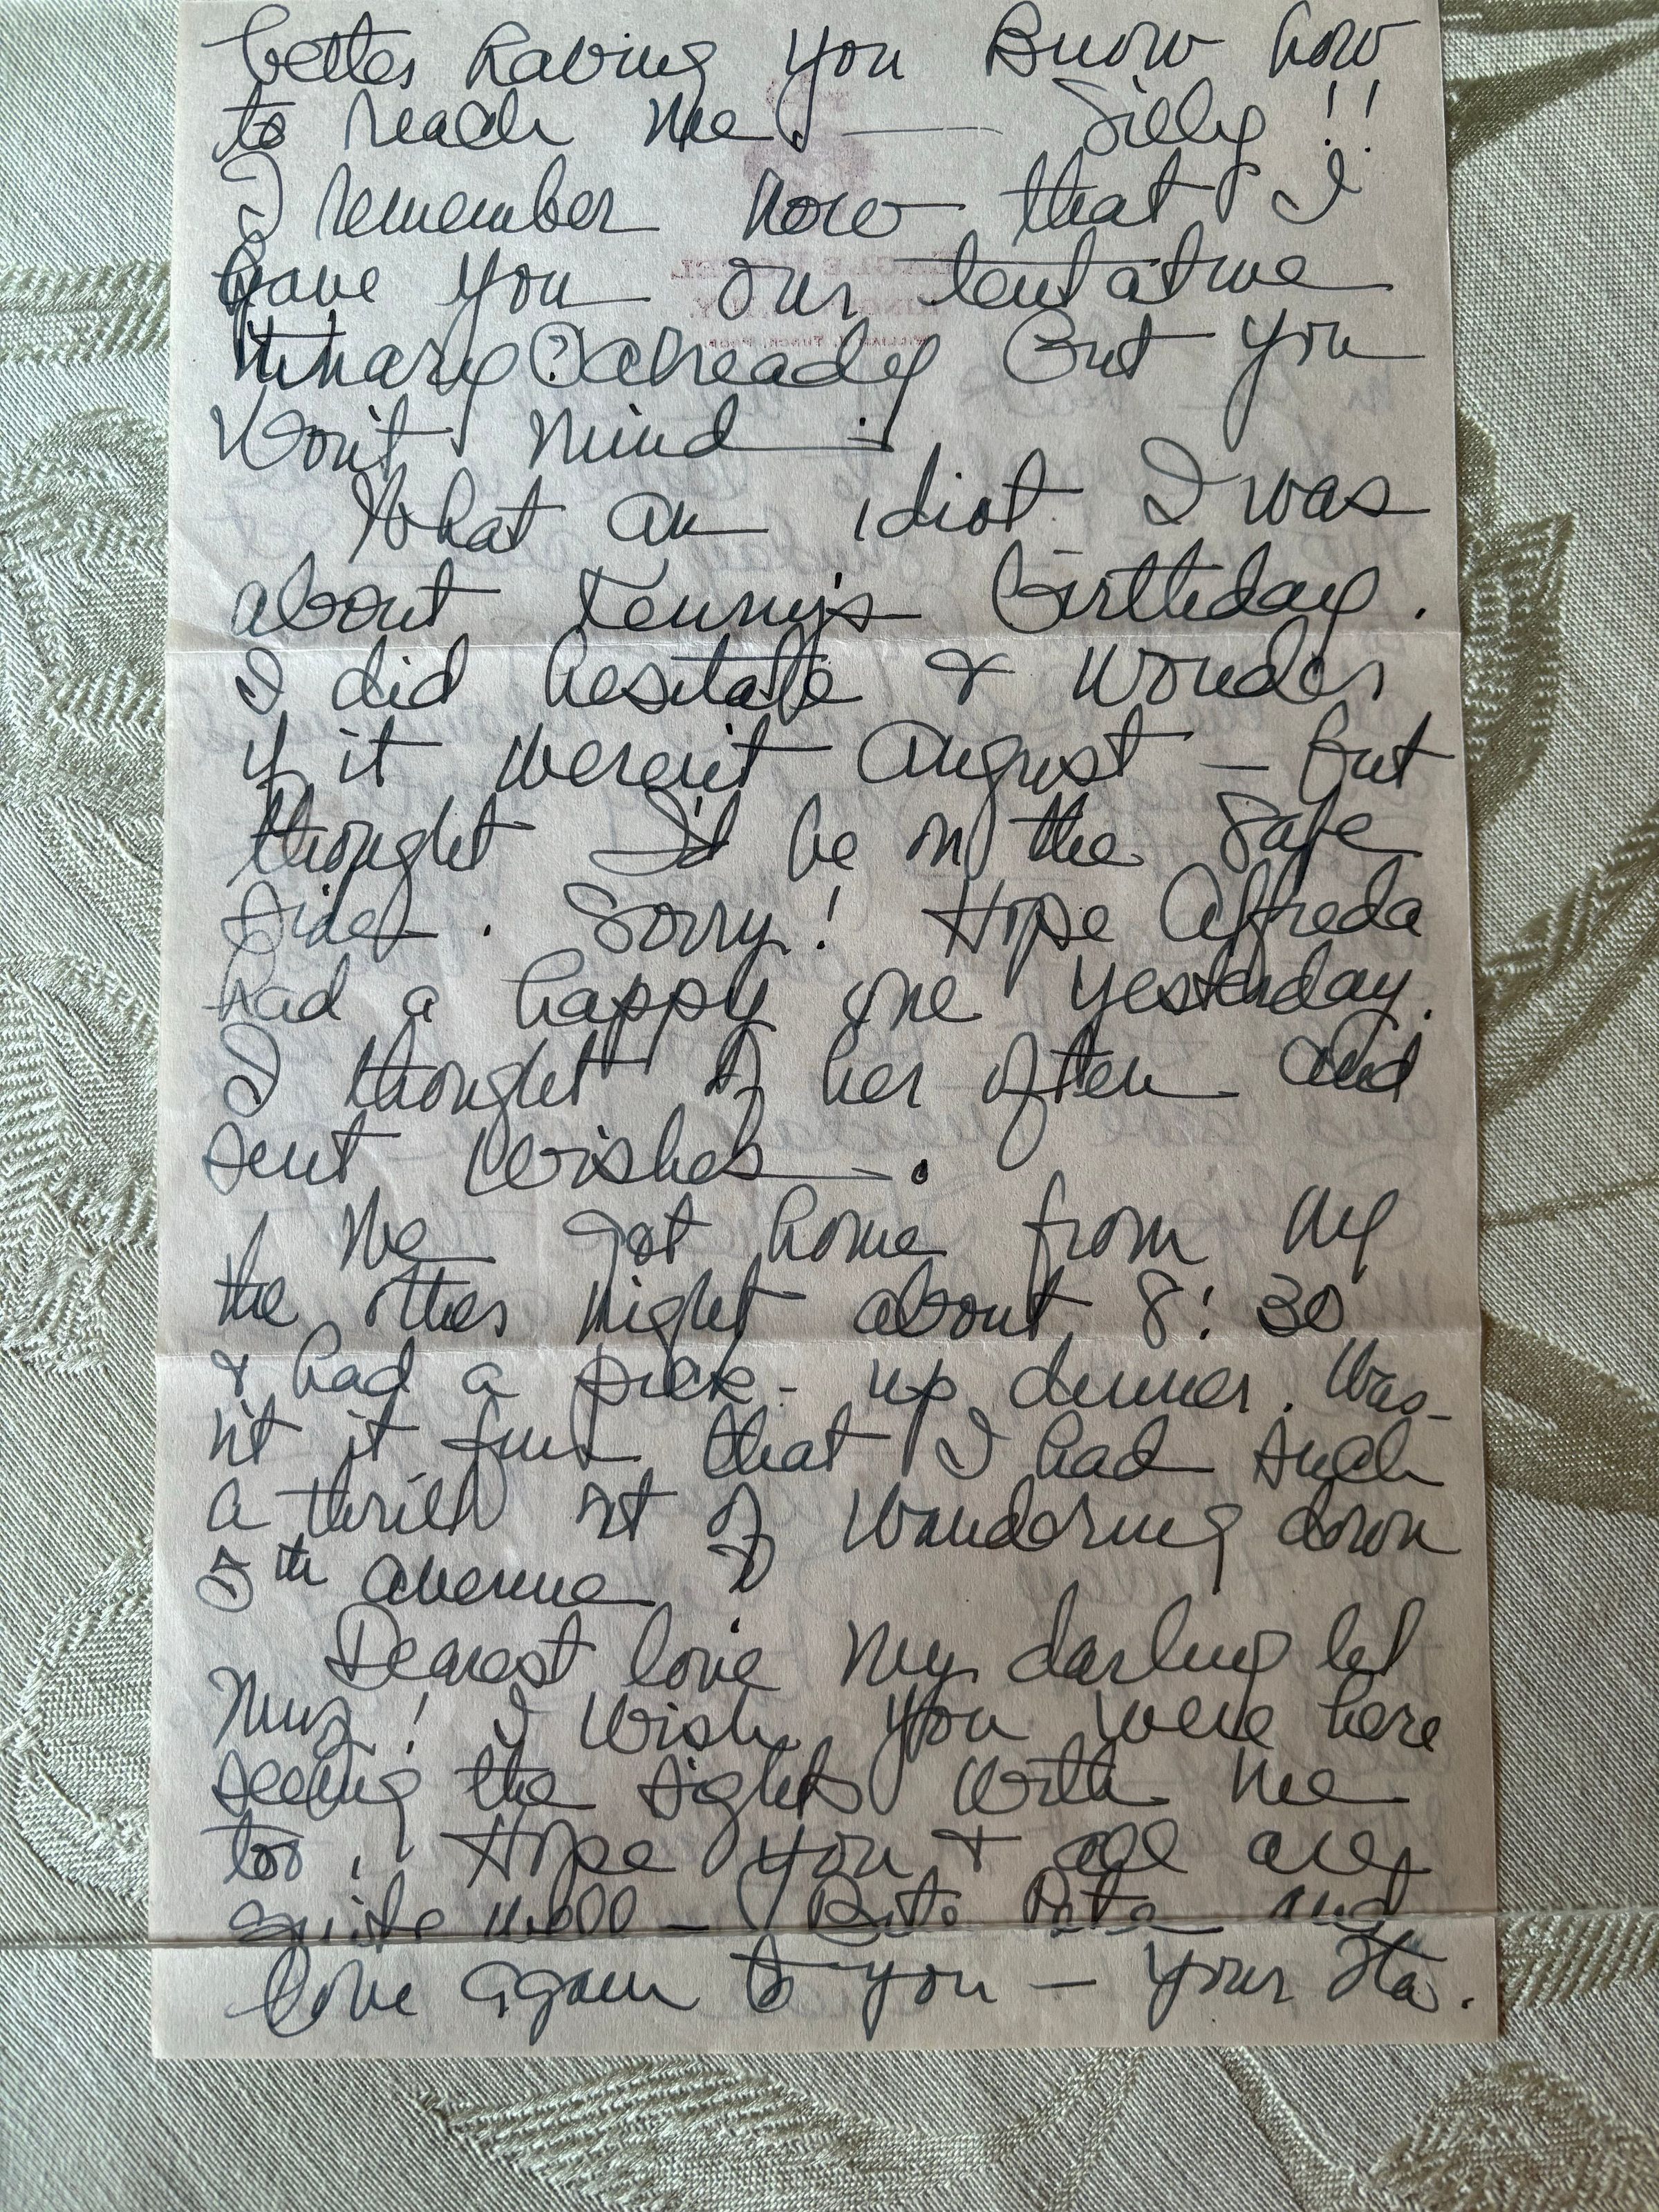 better having you know how
to reach me. — Silly!!
I remember now that I
gave you our tentative
itinary(?) already but you
won't mind —
What an idiot I was
about Kenny's birthday.
I did hesitate & wonder
if it weren't August — but
thought I'd be on the safe
side. Sorry! Hope Alfreda
had a happy one yesterday.
I thought of her often and
sent wishes —.
We got home from NY
the other night about 8:30
& had a pick-up dinner. Was-
n't it fun that I had such
a thrill out of wandering down
5th avenue?
Dearest love my darling lil
Muz! I wish you were here
seeing the sights with me
too! Hope you & all are
quite well — and
love again to you — your Sta.
EAGLE HOTEL
N.Y.
WILLIAM TUNCK, PROP.